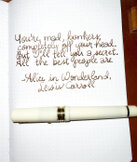 You're mad, bonkers,
completely off your head.
But I'll tell you a secret.
All the best people are.
-Alice in Wonderland,
Lewis Carroll